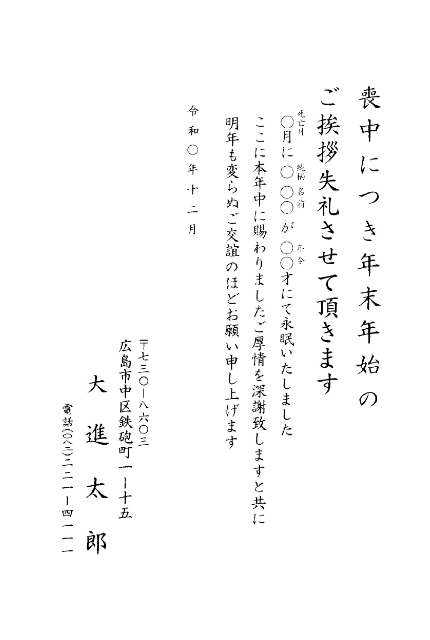 喪中につき年末年始の
ご挨拶失礼させて頂きます
死亡月 続柄 名前 年令
〇月に〇〇〇が〇〇才にて永眠いたしました
ここに本年中に賜わりましたご厚情を深謝致しますと共に
明年も変らぬご交誼のほどお願い申し上げます
令和〇年十二月
〒七三〇ー八六〇三
広島市中区鉄砲町一ー十五
大進太郎
電話(〇八二)二二一ー四一一一